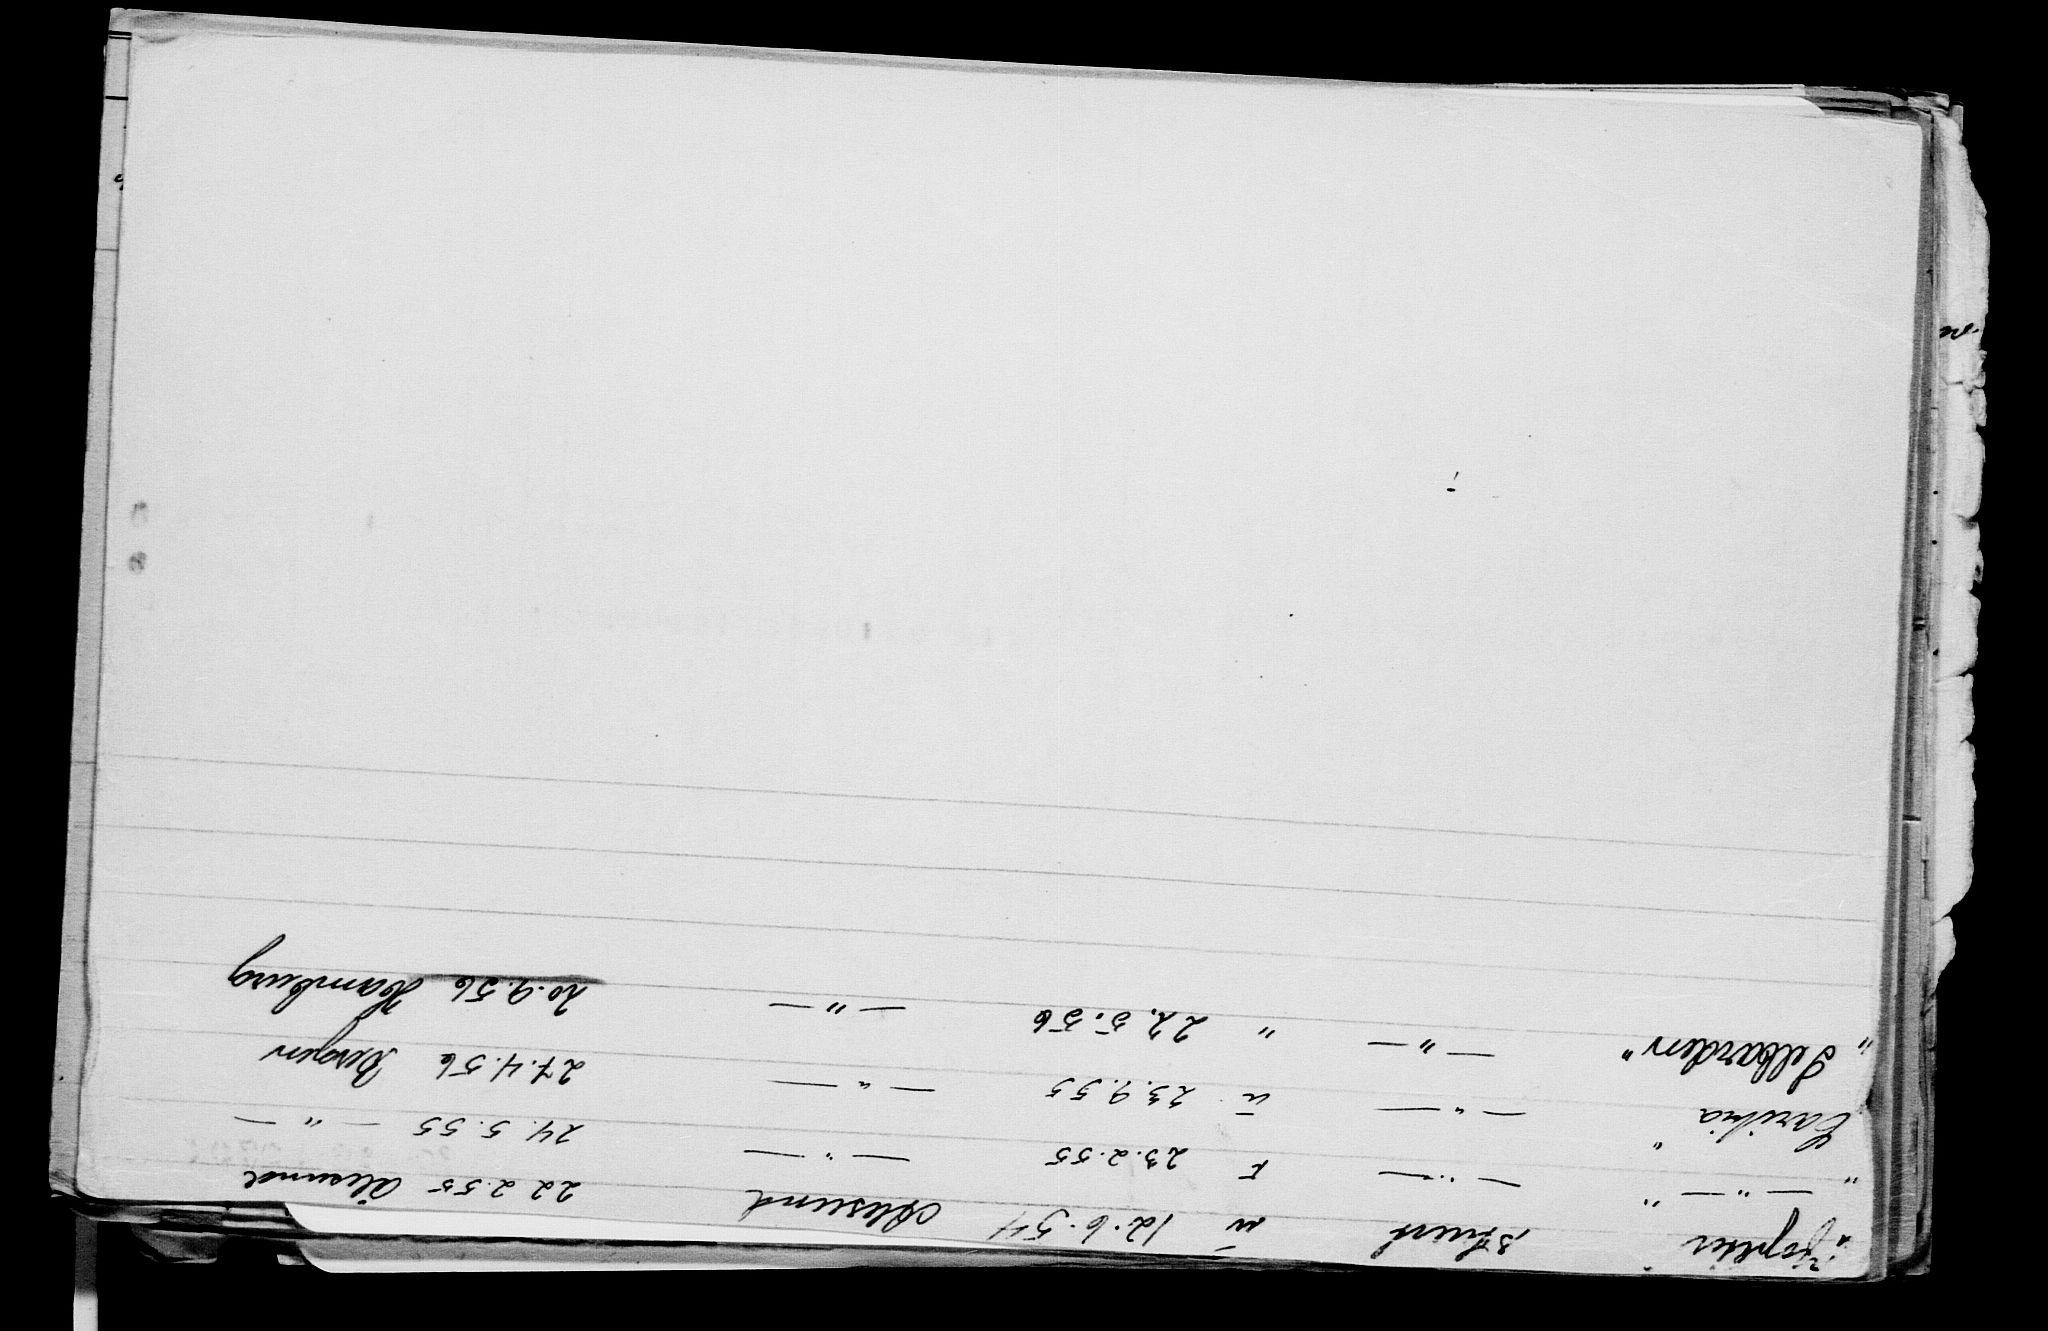 "Jopeter" 3 stuert u 12.6.54 Aalesund 22 2.55 Ålesund
" — " — " — " — F 23.2.55 — " — 24.5.55 — " —
Caribia " — " — u 23.9.55 — " — 27.4.56 Bergen
" Selbarden " — " — " 22.5.56 — " — 20.9.56 Hamburg